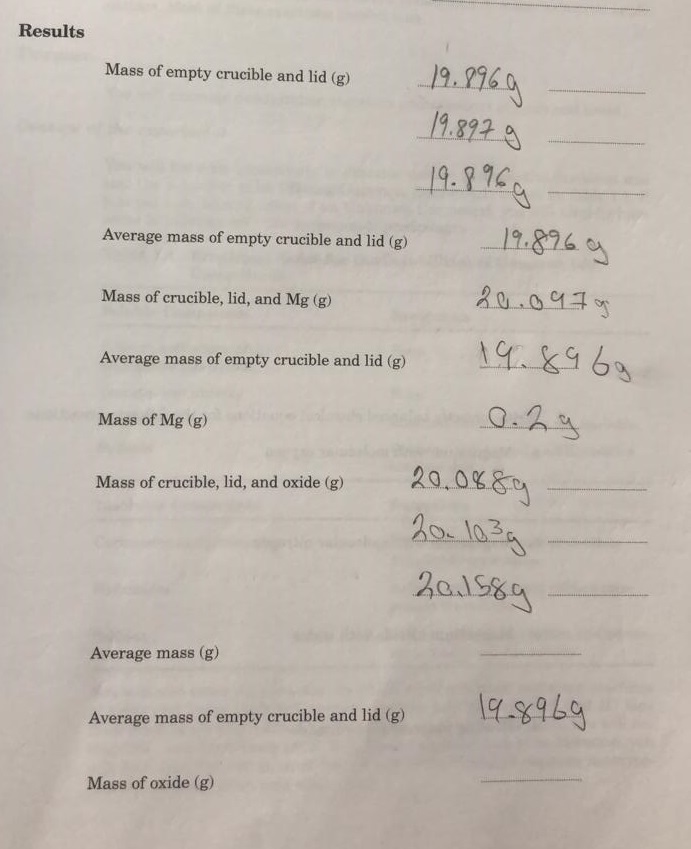 Results
Mass of empty crucible and lid (g) 19.896g
19.897 g
19.896g
Average mass of empty crucible and lid (g) 19.896 g
Mass of crucible, lid, and Mg (g) 20.097g
Average mass of empty crucible and lid (g) 19.896g
Mass of Mg (g) 0.2 g
Mass of crucible, lid, and oxide (g) 20.088g
20.103g
20.158g
Average mass (g)
Average mass of empty crucible and lid (g) 19.896g
Mass of oxide (g)